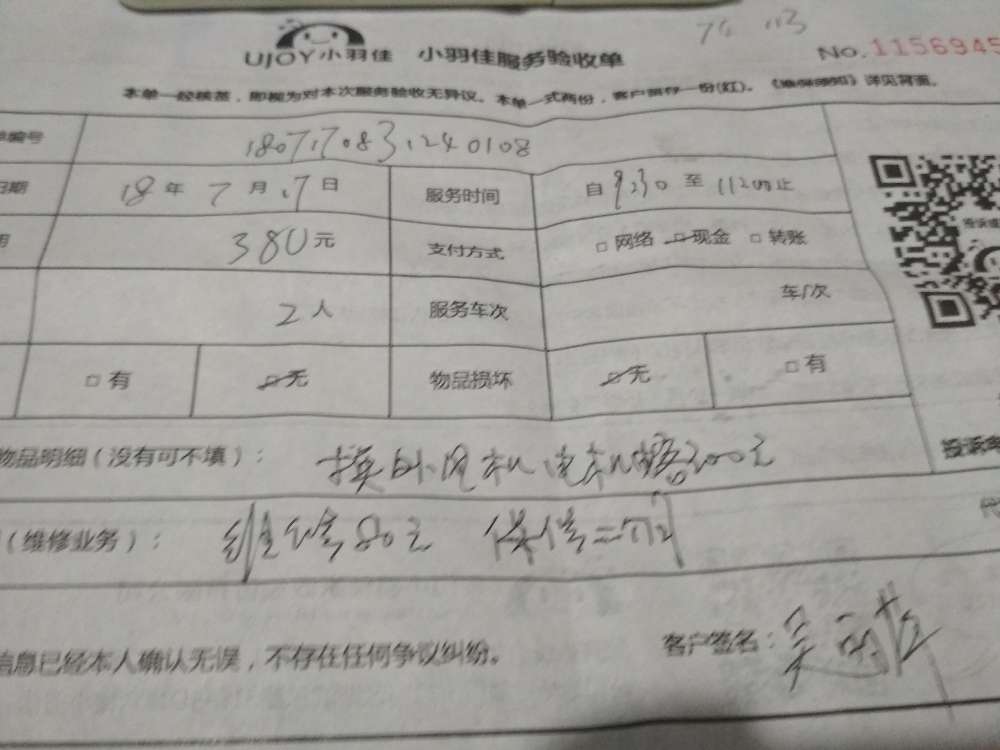 UJOY小羽佳 小羽佳服务验收单
No.1156945
本单一经核签，即视为对本次服务验收无异议。本单一式两份，客户留存一份(红)。《维保须知》详见背面。
编号 1807170831240108
日期 18年7月17日 服务时间 自9:30至11200止
380元 支付方式 □网络 ☑现金 □转账
2人 服务车次 车/次
□有 ☑无 物品损坏 ☑无 □有
物品明细（没有可不填）： 换外风机电机 300元
投诉
（维修业务）： 维修80元 保修三个月
信息已经本人确认无误，不存在任何争议纠纷。 客户签名：吴